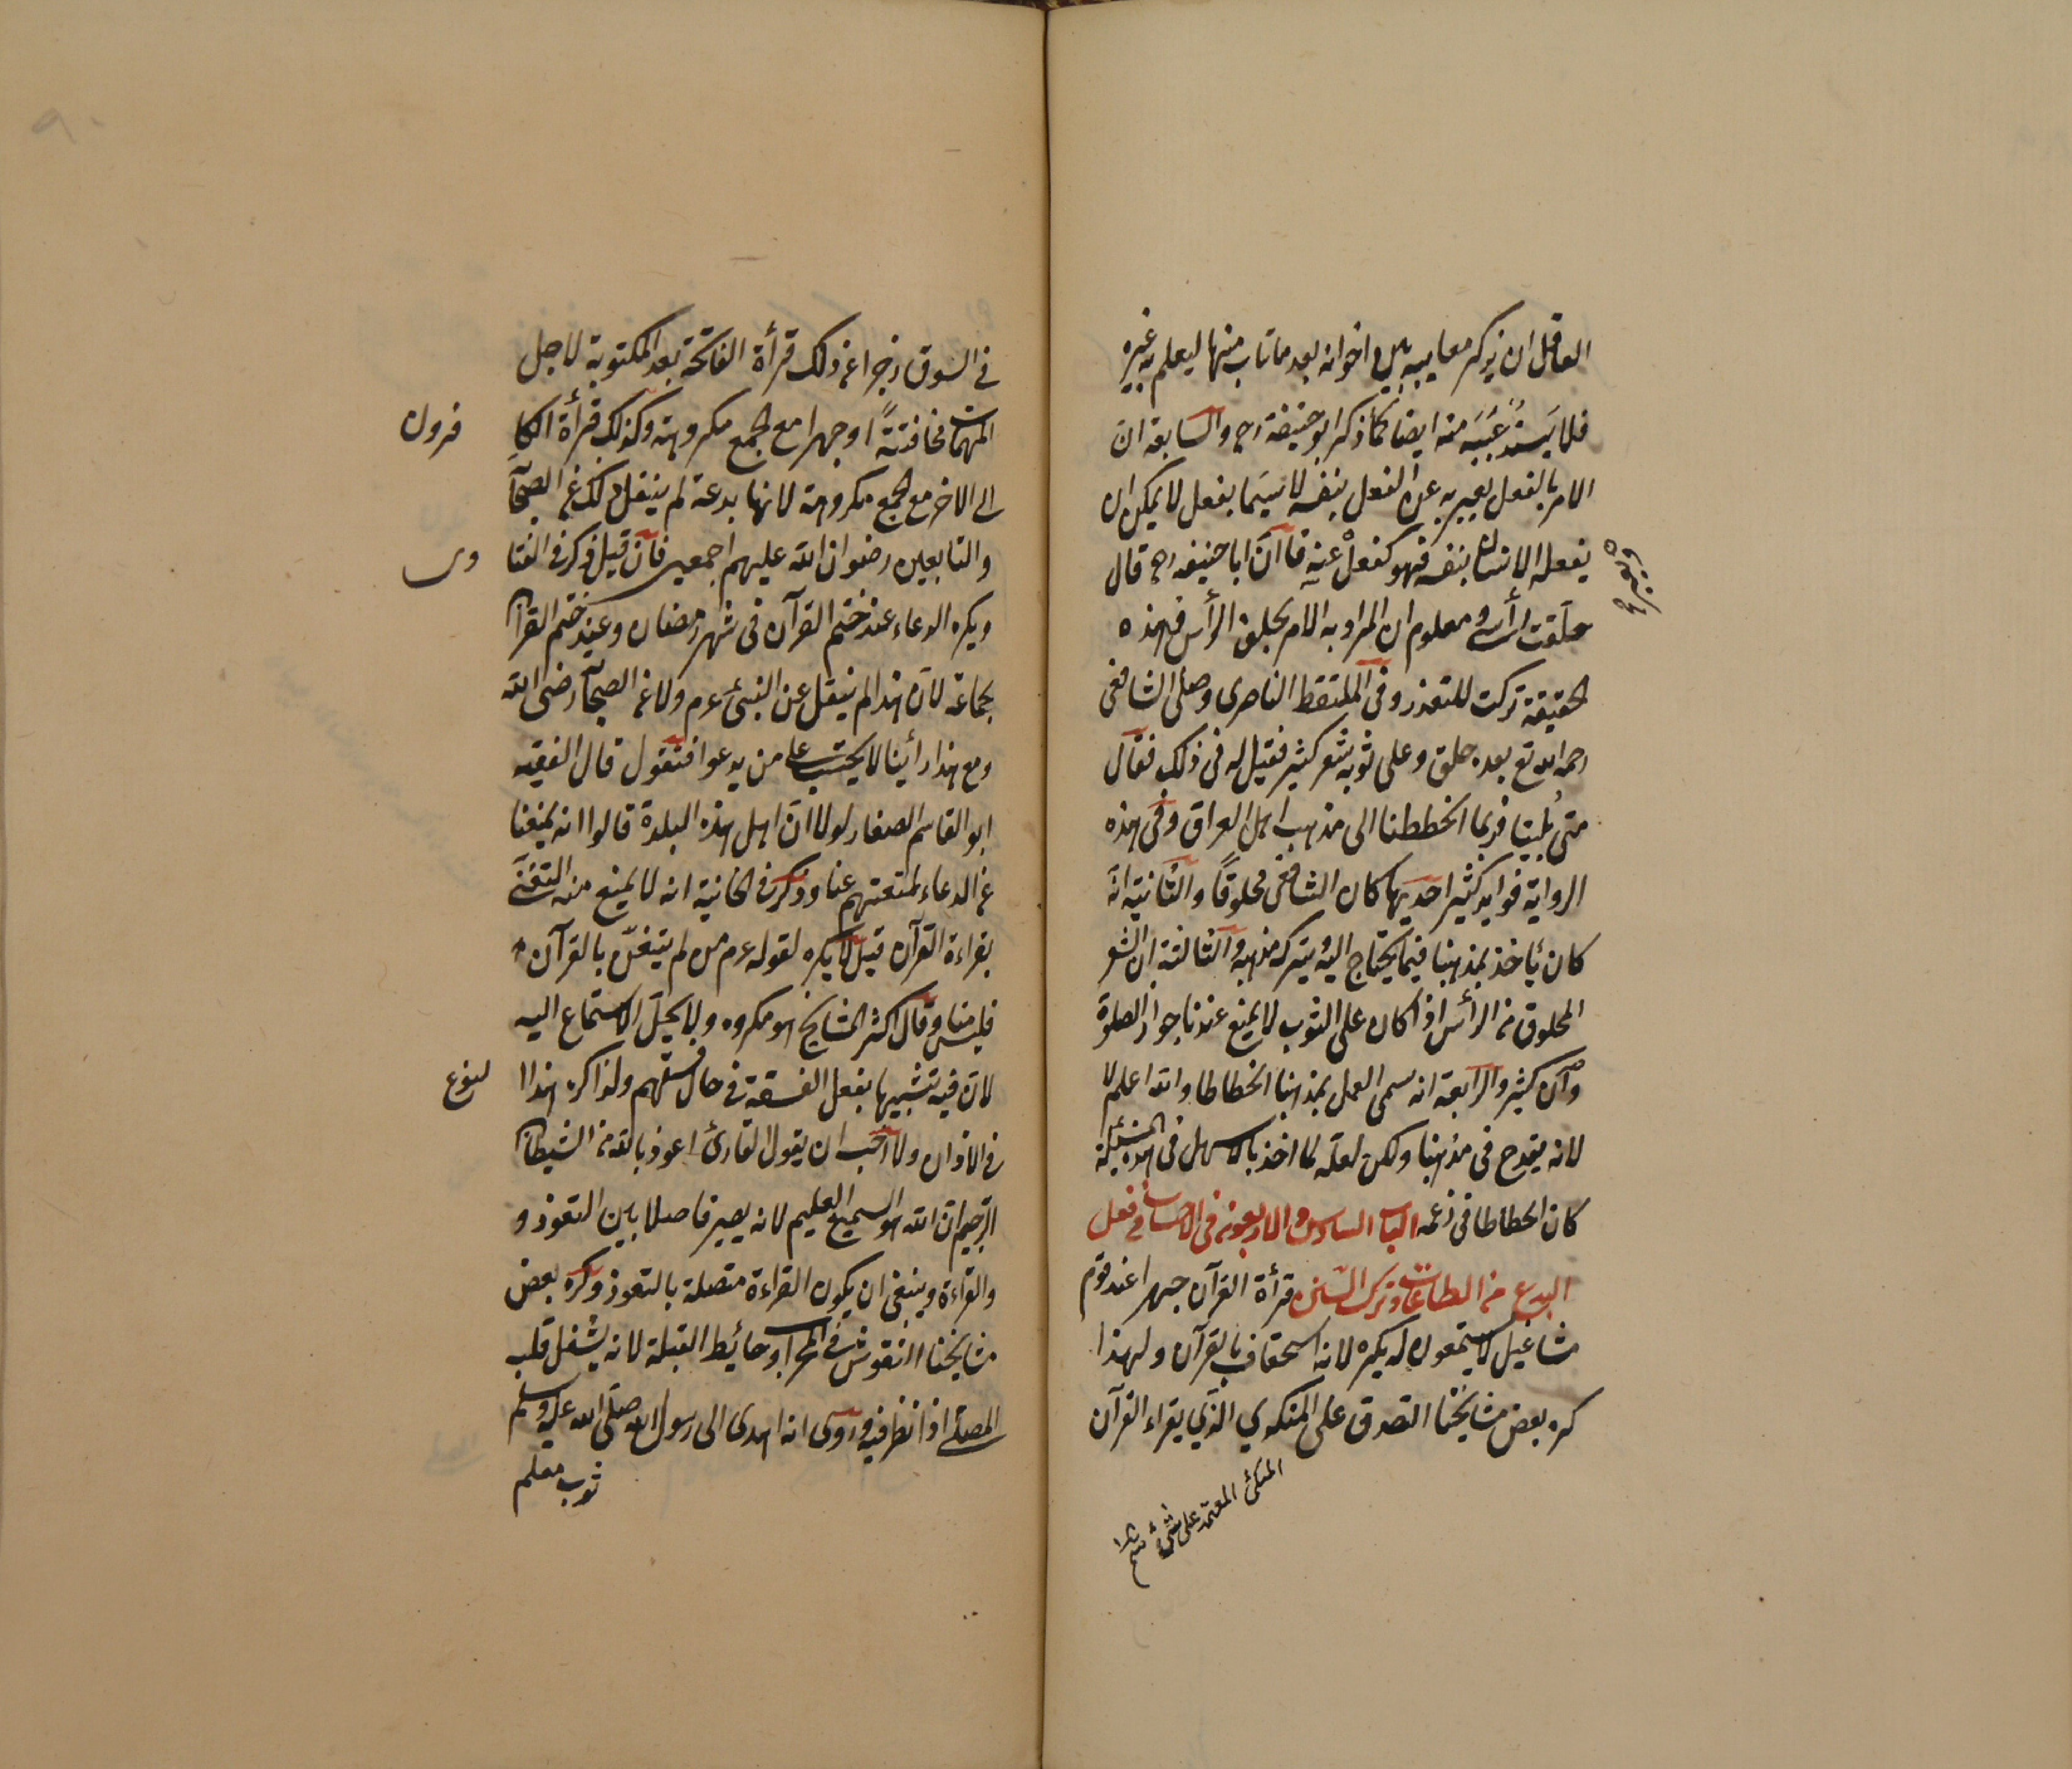 العاقل ان يذكر معايبه بين اخوانه بعد ما تاب منها ليعلم به غيره
فلا يستر عيبه منه ايضا كما ذكر ابو حنيفة رح والسابعة ان
الامر بالفعل يعبر به عن الفعل بنفسه لا سيما بفعل لا يمكن ان
يفعله الانسان بنفسه فهو كفعل عنه فان ابا حنيفة رح قال
حلقت رأسى ومعلوم ان المراد به الامر بحلق الرأس فهذه
الحقيقة تركت للتعذر وفى الملتقط الناصرى وصلى الشافعى
رحمه الله تع بعد حلق وعلى ثوبه شعر كثير فقيل له فى ذلك فقال
متى بلينا فربما انحططنا الى مذهب اهل العراق وفى هذه
الرواية فوايد كثير احديها كان الشافعى محلوقا والثانية انه
كان يأخذ بمذهبنا فيما يحتاج اليه ويترك مذهبه والثالثة ان الشعر
المحلوق من الرأس اذا كان على الثوب لا يمنع عندنا جواز الصلوة
وان كثير والرابعة انه سمى العمل بمذهبنا انحطاطا والله اعلم لا
لانه يقدح فى مذهبنا ولكن لعله لما اخذ بالاسهل فى هذه المسئلة
كان انحطاطا فى زعمه الباب السادس والاربعون فى الاحتساب فى فعل
البدع من الطاعات وترك السنن قرأة القرآن جهرا عند قوم
مشاغيل لا يستمعون له يكره لانه استخفاف بالقرآن ولهذا
كره بعض مشايخنا التصدق على المتكدي الذي يقراء القرآن
المتكئ المعتمد على شئ
فى السوق زجرا عن ذلك قرأة الفاتحة بعد المكتوبة لاجل
المهمات مخافتةً او جهرا مع الجمع مكروهة وكذلك قرأة الكا فرون
الى الاخر مع الجمع مكروهة لانها بدعة لم ينقل ذلك عن الصحابة
والتابعين رضوان الله عليهم اجمعين فان قيل ذكر فى الفتا وى
ويكره الدعاء عند ختم القرآن فى شهر رمضان وعند ختم القرآن
بجماعة لان هذا لم ينقل عن النبى عم ولا عن الصحابة رضى الله
ومع هذا رأينا لا يحتسب على من يدعوا فنقول قال الفقيه
ابو القاسم الصفار لولا ان اهل هذه البلدة قالوا انه يمنعنا
عن الدعاء لمنعتهم عنا وذكر فى الخانية انه لا يمنع منه التغنى
بقراءة القرآن قيل لا يكره لقوله عم من لم يتغن بالقرآن
فليس منا وقال اكثر المشايخ هو مكروه ولا يحل الاستماع اليه
لان فيه تشبيها بفعل الفسقة فى حال فسقهم ولذا كره هذا ا لنوع
فى الاذان ولا احب ان يقول القارئ اعوذ بالله من الشيطان
الرجيم ان الله هو السميع العليم لانه يصير فاصلا بين التعوذ و
والقراءة وينبغى ان يكون القراءة متصلة بالتعوذ وكره بعض
مشايخنا النقوش فى المحراب وحائط القبلة لانه يشغل قلب
المصلى اذا نظر فيه وروى انه اهدى الى رسول الله صلى الله عليه وسلم
ثوب معلم